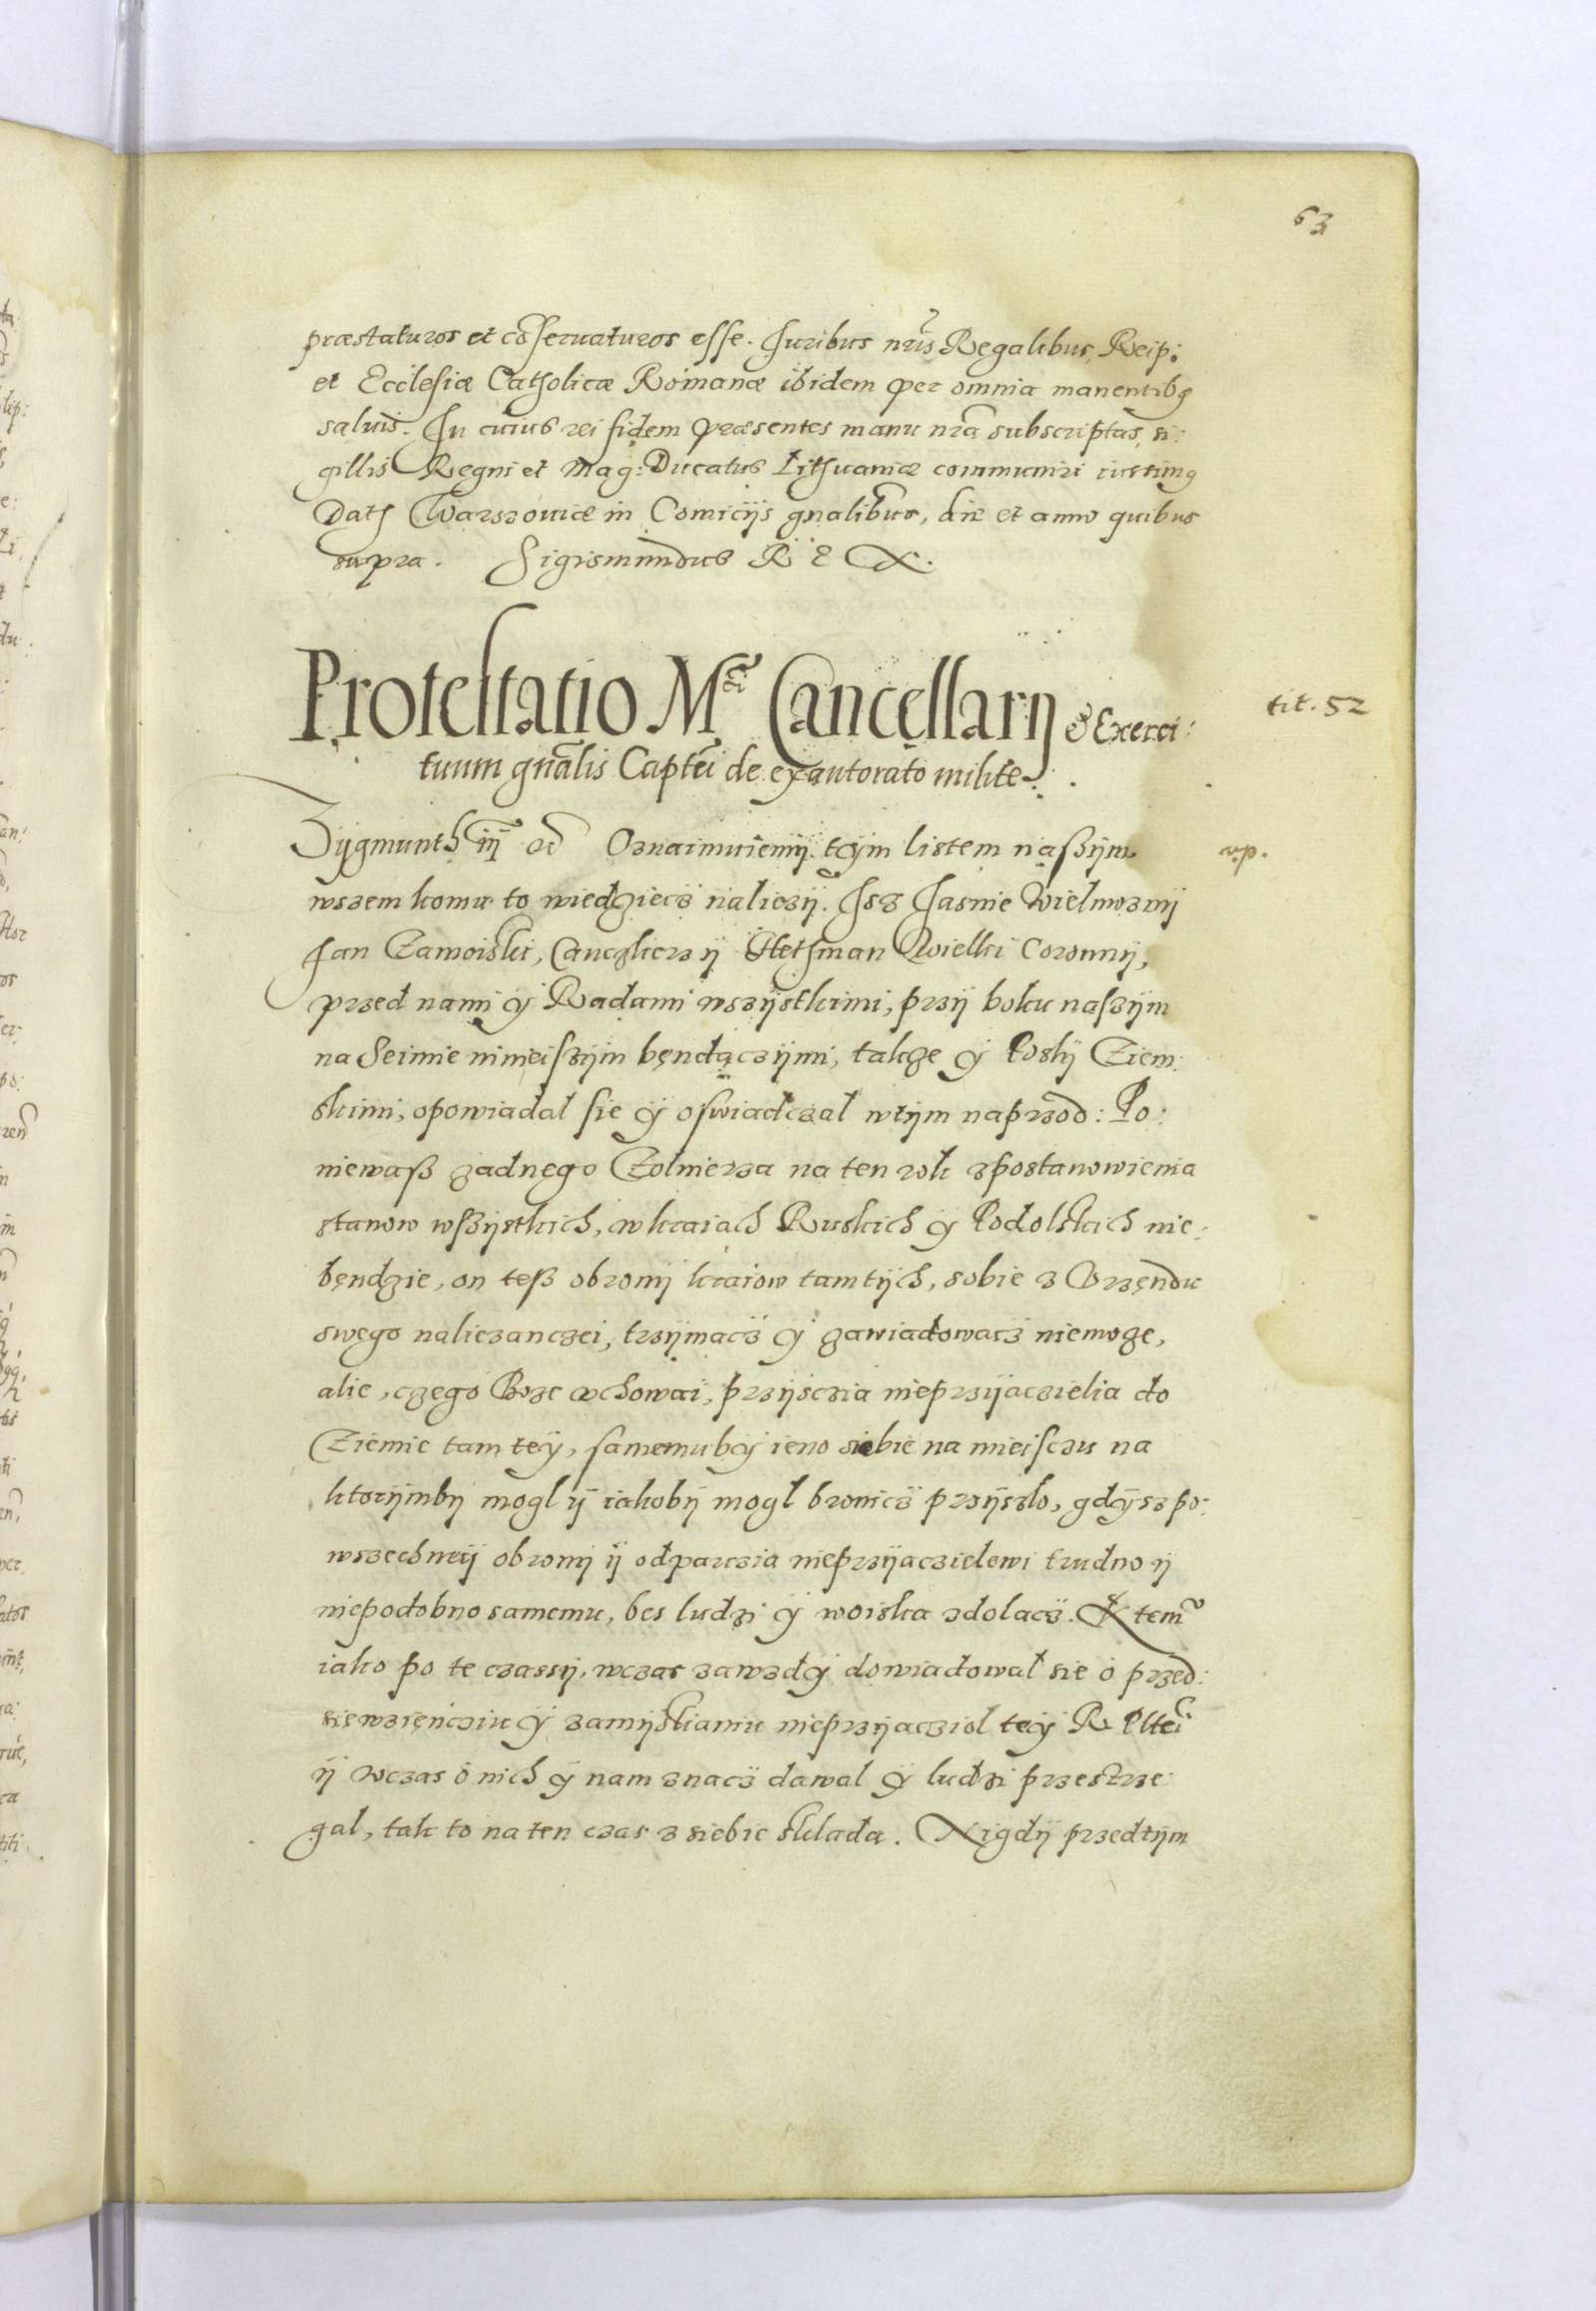 63
præstaturos et cõseruaturos esse. Iuribus nr̃is Regalibus, Reip:
et Ecclesiæ Catholicæ Romanæ ibidem per omnia manentibq
saluis. In cuius rei fidem præsentes manu nr̃a subscriptas, si:
gillis Regni et Mag: Ducatus Lithuaniæ communiri iussimq
Dath Warszouiæ in Comicijs gn̄alibus, die et anno quibus
supra. Sigismundus R E X.
Protestatio Mci Cancellarij & Exerci:
tuum gn̄alis Captei de exautorato milite.
tit. 52
Zijgmunth iij etc Oznaimuiemij tijm listem naßijm
wszem komu to wiedziecz naliezij. Isz Jasnie Wielmoznij
Jan Zamoiski, Canczlierz ij Hethman Wielki Coronnij,
przed nami ij Radami wszijstkimi, przij boku naszijm
na Seimie ninieiszijm będączijmi, takze ij Posłij Ziem:
skimi, opowiadal sie ij oswiadczal wtijm naprzod: Po:
niewaß zadnego Zolnierza na ten rok zpostanowienia
stanow wszijstkich, w kraiach Ruskich ij Podolskich nie:
bęndzie, on teß obronij kraiow tamtijch, sobie z Vrzęndu
swego naliezanczei, trzijmacz ij zawiadowacz niemoze,
alie, czego Boze vchowai, przijsczia nieprzijaczielia do
Ziemie tam teij, samemubij ieno siebie na mieisczu na
ktorijmbij mogl ij iakobij mogl bronicz przijszlo, gdijsz po:
wszechneij obronij ij odparczia nieprzijaczielowi trudno ij
niepodobno samemu, bes ludzi ij woiska zdolacz. K temu
iako po te czassij, wczas zawzdij dowiadowal sie o przed:
sięwzięncziu ij zamijslianiu nieprzijacziol teij R Pltei
ij wczas o nich ij nam znacz dawal ij ludzi przestrze:
gal, tak to na ten czas z siebie sklada. Nigdij przedtijm